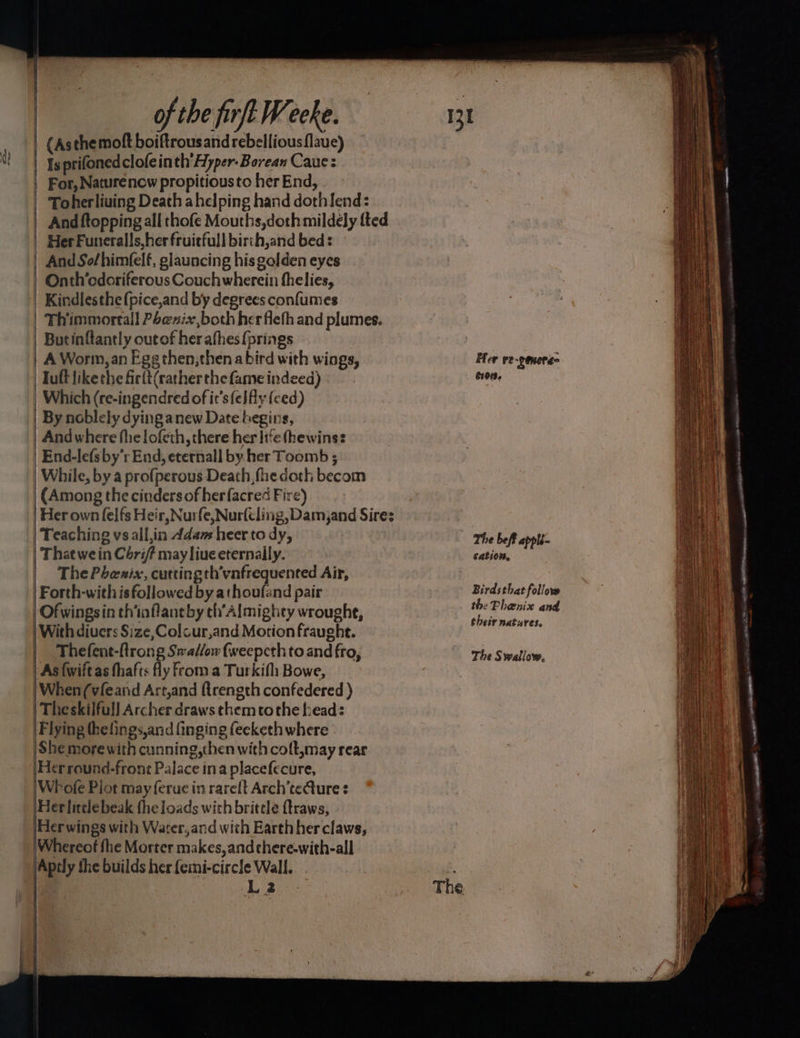 of the first Weeke. 131
(As the most boistrous and rebellious slaue)
Is prisoned close in th' Hyper-Borean Caue:
For, Nature now propitious to her End,
To her liuing Death a helping hand doth lend:
And stopping all those Mouths, doth mildely sted
Her Funeralls, her fruitfull birth, and bed:
And Sol himself, glauncing his golden eyes
On th'odoriferous Couch wherein she lies,
Kindles the spice, and by degrees consumes
Th'immortall Phœnix, both her flesh and plumes.
But instantly out of her ashes springs
A Worm, an Egg then, then a bird with wings,
Iust like the first (rather the same indeed)
Which (re-ingendred of it's selfly seed)
By noblely dying a new Date begins,
And where she loseth, there her life she wins:
End-less by'r End, eternall by her Toomb;
While, by a prosperous Death, she doth becom
(Among the cinders of her sacred Fire)
Her own selfs Heir, Nurse, Nurseling, Dam, and Sire:
Teaching vs all, in Adam heer to dy,
That we in Christ may liue eternally.
The Phœnix, cutting th'vnfrequented Air,
Forth-with is followed by a thousand pair
Of wings in th'instant by th'Almighty wrought,
With diuers Size, Colour, and Motion fraught.
The sent-strong Swallow sweepeth to and fro,
As swift as shafts fly from a Turkish Bowe,
When (vse and Art, and strength confedered)
The skilfull Archer draws them to the head:
Flying she sings, and singing seeketh where
She more with cunning, then with cost, may rear
Her round-front Palace in a place secure,
Whose Plot may serue in rarest Arch'tecture:
Her little beak she loads with brittle straws,
Her wings with Water, and with Earth her claws,
Whereof she Morter makes, and there-with-all
Aptly she builds her semi-circle Wall.
L 2 The
Her re-genera-
tion.
The best appli-
cation.
Birds that follow
the Phœnix and
their natures.
The Swallow.